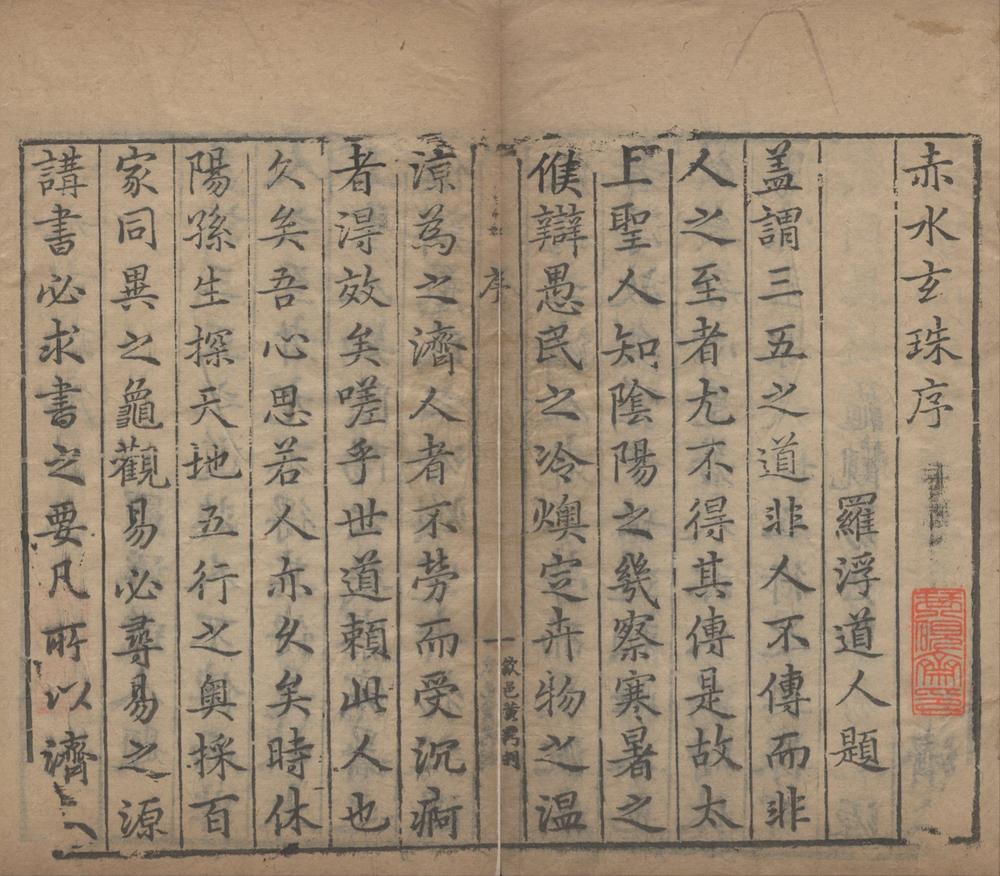 赤水玄珠序
羅浮道人題
蓋謂三五之道非人不傳而非
人之至者尤不得其傳是故太
上聖人知陰陽之幾察寒暑之
候辯愚民之冷燠定卉物之温
序
一
歙邑黃
涼為之濟人者不勞而受沉痾
者淂效矣嗟乎世道賴此人也
久矣吾心思若人亦久矣時休
陽孫生探天地五行之奧採百
家同異之龜觀易必尋易之源
講書必求書之要凡所以濟